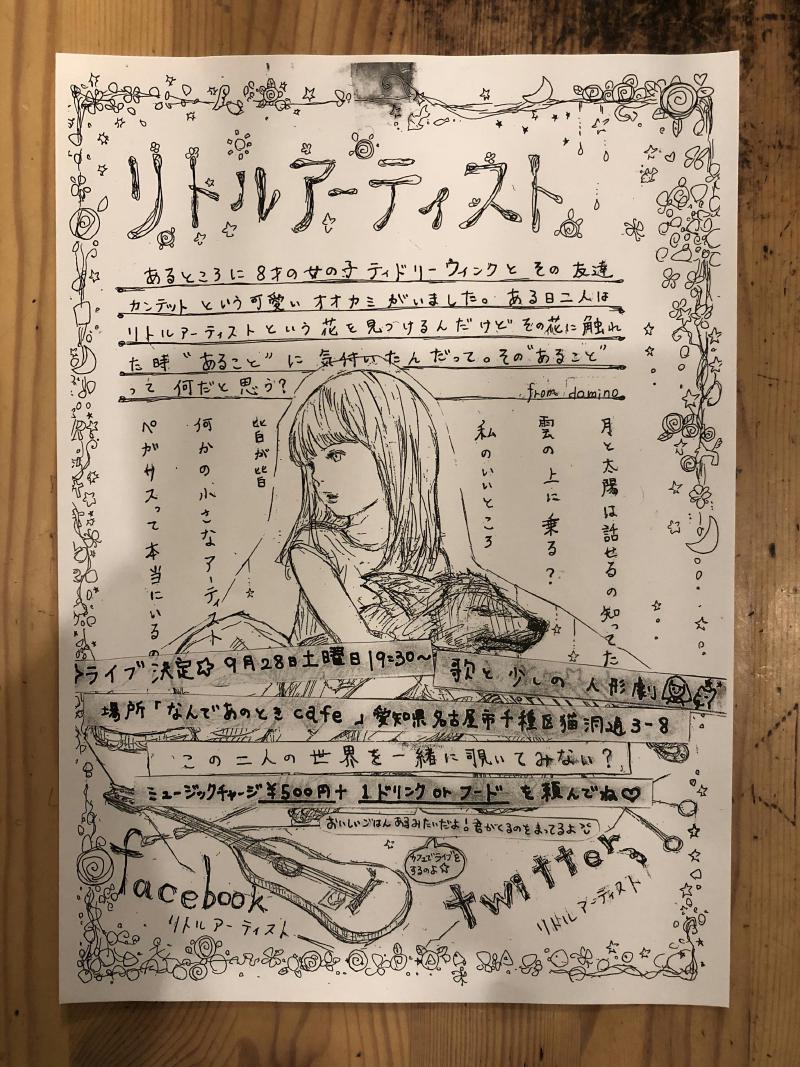 リトルアーティスト
あるところに8才の女の子ティドリーウィンクとその友達
カンデットという可愛いオオカミがいました。ある日二人は
リトルアーティストという花を見つけるんだけどその花に触れ
た時“あること”に気付いたんだって。その“あること”
って何だと思う?
from domino
月と太陽は話せるの知ってた
雲の上に乗る?
私のいいところ
皆が皆
何かの小さなアーティスト
ペガサスって本当にいるの
ライブ決定☆9月28日土曜日19:30~
歌と少しの人形劇
場所「なんであのときcafe」愛知県名古屋市千種区猫洞通3-8
この二人の世界を一緒に覗いてみない?
ミュージックチャージ¥500円+1ドリンクorフードを頼んでね♡
おいしいごはんあるみたいだよ!君がくるのをまってるよ
カフェでライブを
するのよ☆
facebook
リトルアーティスト
twitter
リトルアーティスト